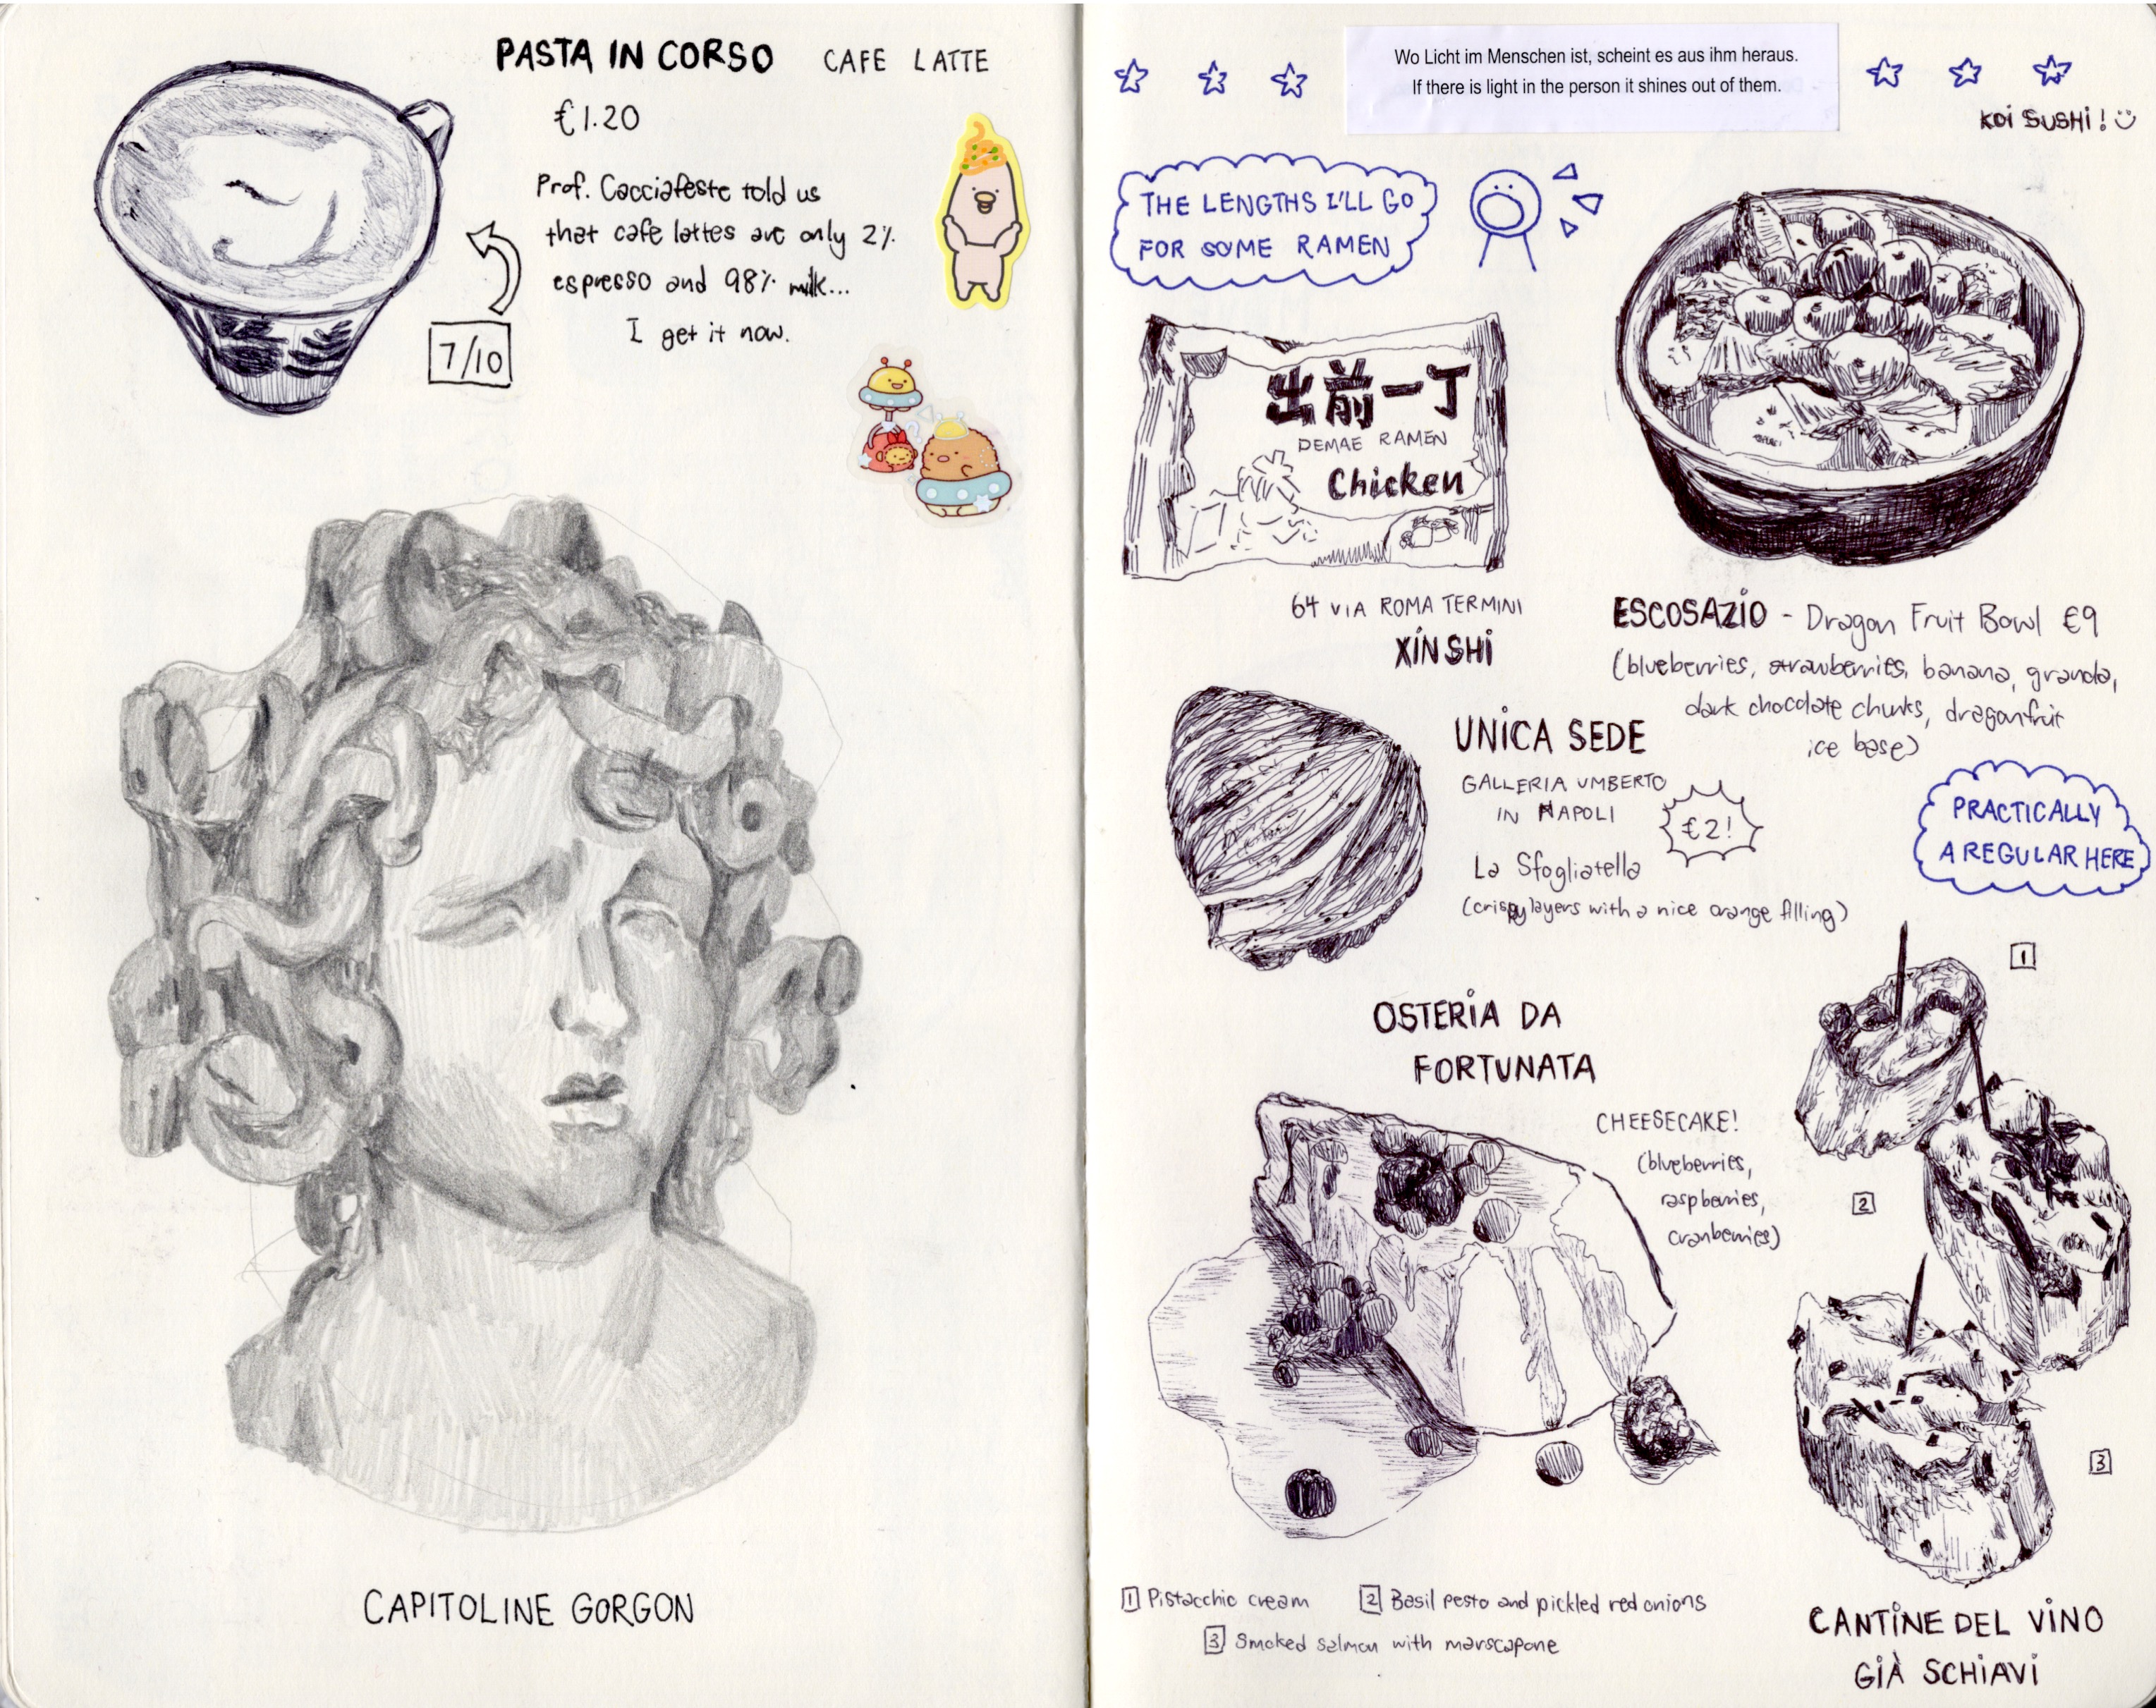 PASTA IN CORSO CAFE LATTE
€1.20
Prof. Cacciafeste told us
that cafe lattes are only 2%
espresso and 98% milk...
I get it now.
7/10
CAPITOLINE GORGON
Wo Licht im Menschen ist, scheint es aus ihm heraus.
If there is light in the person it shines out of them.
KOI SUSHI!
THE LENGTHS I'LL GO
FOR SOME RAMEN
出前一丁
DEMAE RAMEN
Chicken
64 VIA ROMA TERMINI
XINSHI
ESCOSAZIO - Dragon Fruit Bowl €9
(blueberries, strawberries, banana, granola,
dark chocolate chunks, dragonfruit
ice base)
PRACTICALLY
A REGULAR HERE
UNICA SEDE
GALLERIA UMBERTO
IN NAPOLI
€2!
La Sfogliatella
(crispy layers with a nice orange filling)
OSTERIA DA
FORTUNATA
CHEESECAKE!
(blueberries,
raspberries,
cranberries)
1
2
3
1 Pistacchio cream 2 Basil pesto and pickled red onions
3 Smoked salmon with marscapone
CANTINE DEL VINO
GIÀ SCHIAVI